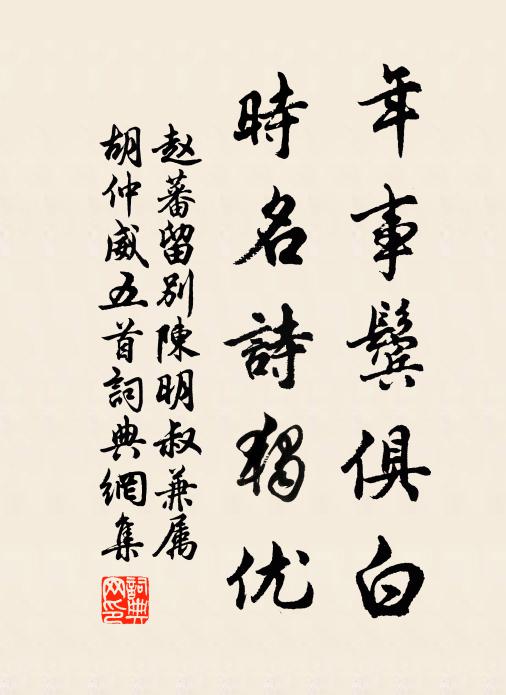 年事鬓俱白
時名詩獨优
赵蕃留别陳明叔兼属
胡仲威五首詞典網集
詞典网印